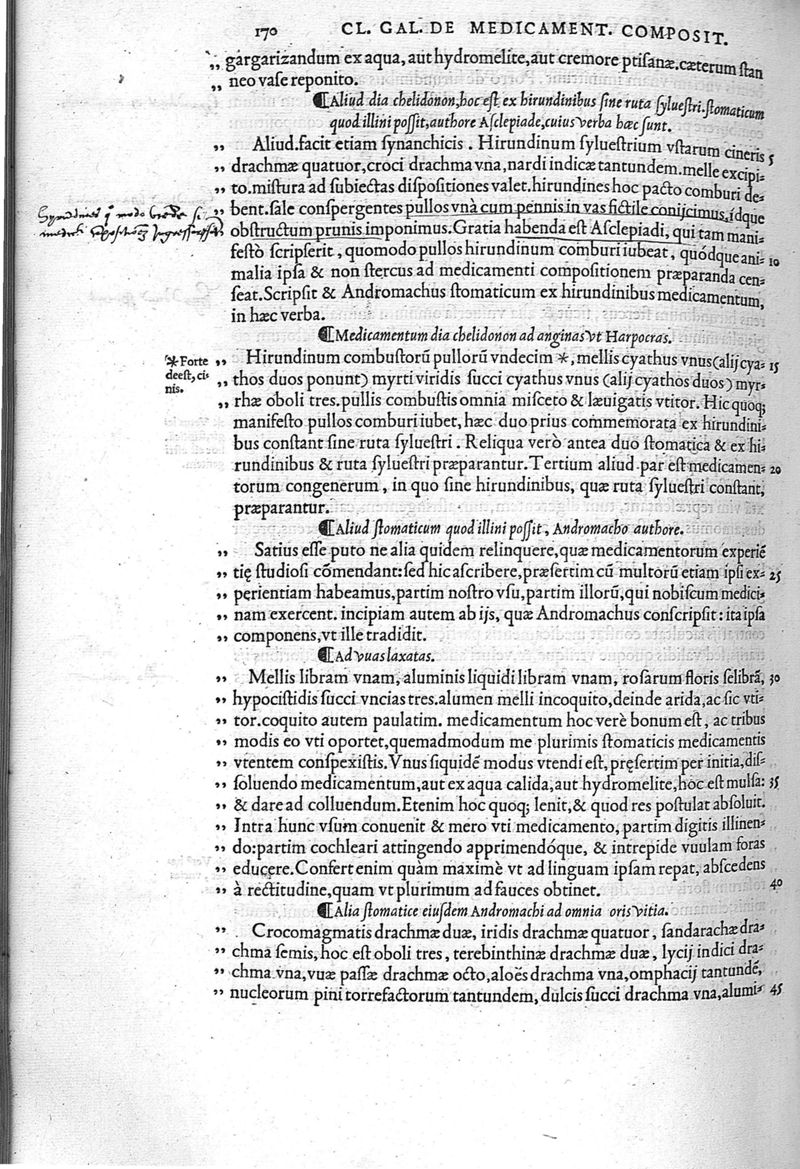 170 CL. GAL. DE MEDICAMENT. COMPOSIT.
„ gargarizandum ex aqua, aut hydromelite, aut cremore ptiſanæ. cæterum ſtan
„ neo vaſe reponito.
¶Aliud dia chelidonon, hoc eſt ex hirundinibus ſine ruta ſylueſtri. ſtomaticum
quod illini poſſit, authore Aſclepiade, cuius verba hæc ſunt.
„ Aliud. facit etiam ſynanchicis. Hirundinum ſylueſtrium vſtarum cineris 5
„ drachmæ quatuor, croci drachma vna, nardi indicæ tantundem. melle excipi-
„ to. miſtura ad ſubiectas diſpoſitiones valet. hirundines hoc pacto comburi de-
„ bent. ſale conſpergentes pullos vnà cum pennis in vas fictile conijcimus. idque
„ obſtructum prunis imponimus. Gratia habenda eſt Aſclepiadi, qui tam mani-
feſtò ſcripſerit, quomodo pullos hirundinum comburi iubeat, quódque ani- 10
malia ipſa & non ſtercus ad medicamenti compoſitionem præparanda cen-
ſeat. Scripſit & Andromachus ſtomaticum ex hirundinibus medicamentum,
in hæc verba.
¶Medicamentum dia chelidonon ad anginas vt Harpocras.
*Forte
deeſt, ci-
nis.
„ Hirundinum combuſtorū pullorū vndecim *, mellis cyathus vnus (alij cya- 15
„ thos duos ponunt) myrti viridis ſucci cyathus vnus (alij cyathos duos) myr-
„ rhæ oboli tres. pullis combuſtis omnia miſceto & læuigatis vtitor. Hic quoq;
manifeſto pullos comburi iubet, hæc duo prius commemorata ex hirundini-
bus conſtant ſine ruta ſylueſtri. Reliqua verò antea duo ſtomatica & ex hi-
rundinibus & ruta ſylueſtri præparantur. Tertium aliud par eſt medicamen- 20
torum congenerum, in quo ſine hirundinibus, quæ ruta ſylueſtri conſtant,
præparantur.
¶Aliud ſtomaticum quod illini poſſit, Andromacho authore.
„ Satius eſſe puto ne alia quidem relinquere, quæ medicamentorum experiē
„ tię ſtudioſi cōmendant: ſed hic aſcribere, præſertim cū multorū etiam ipſi ex- 25
„ perientiam habeamus, partim noſtro vſu, partim illorū, qui nobiſcum medici-
„ nam exercent. incipiam autem ab ijs, quæ Andromachus conſcripſit: ita ipſa
„ componens, vt ille tradidit.
¶Ad vuas laxatas.
„ Mellis libram vnam, aluminis liquidi libram vnam, roſarum floris ſelibrā, 30
„ hypociſtidis ſucci vncias tres. alumen melli incoquito, deinde arida, ac ſic vti-
„ tor. coquito autem paulatim. medicamentum hoc verè bonum eſt, ac tribus
„ modis eo vti oportet, quemadmodum me plurimis ſtomaticis medicamentis
„ vtentem conſpexiſtis. Vnus ſiquidē modus vtendi eſt, pręſertim per initia, diſ-
„ ſoluendo medicamentum, aut ex aqua calida, aut hydromelite, hoc eſt mulſa: 35
„ & dare ad colluendum. Etenim hoc quoq; lenit, & quod res poſtulat abſoluit.
„ Intra hunc vſum conuenit & mero vti medicamento, partim digitis illinen-
„ do: partim cochleari attingendo apprimendóque, & intrepide vuulam foras
„ educere. Confert enim quàm maximè vt ad linguam ipſam repat, abſcedens
„ à rectitudine, quam vt plurimum ad fauces obtinet. 40
¶Alia ſtomatice eiuſdem Andromachi ad omnia oris vitia.
„ Crocomagmatis drachmæ duæ, iridis drachmæ quatuor, ſandarachæ dra-
„ chma ſemis, hoc eſt oboli tres, terebinthinæ drachmæ duæ, lycij indici dra-
„ chma vna, vuæ paſſæ drachmæ octo, aloës drachma vna, omphacij tantundē,
„ nucleorum pini torrefactorum tantundem, dulcis ſucci drachma vna, alumi- 45